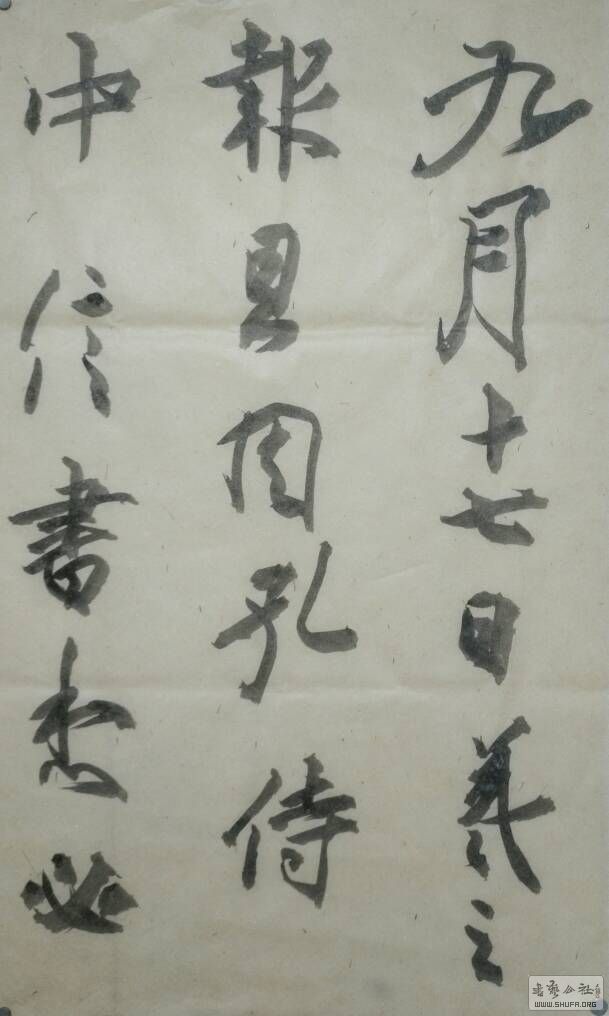 九月十七日羲之
報且因孔侍
中信書想必
書藝公社
WWW.SHUFA.ORG